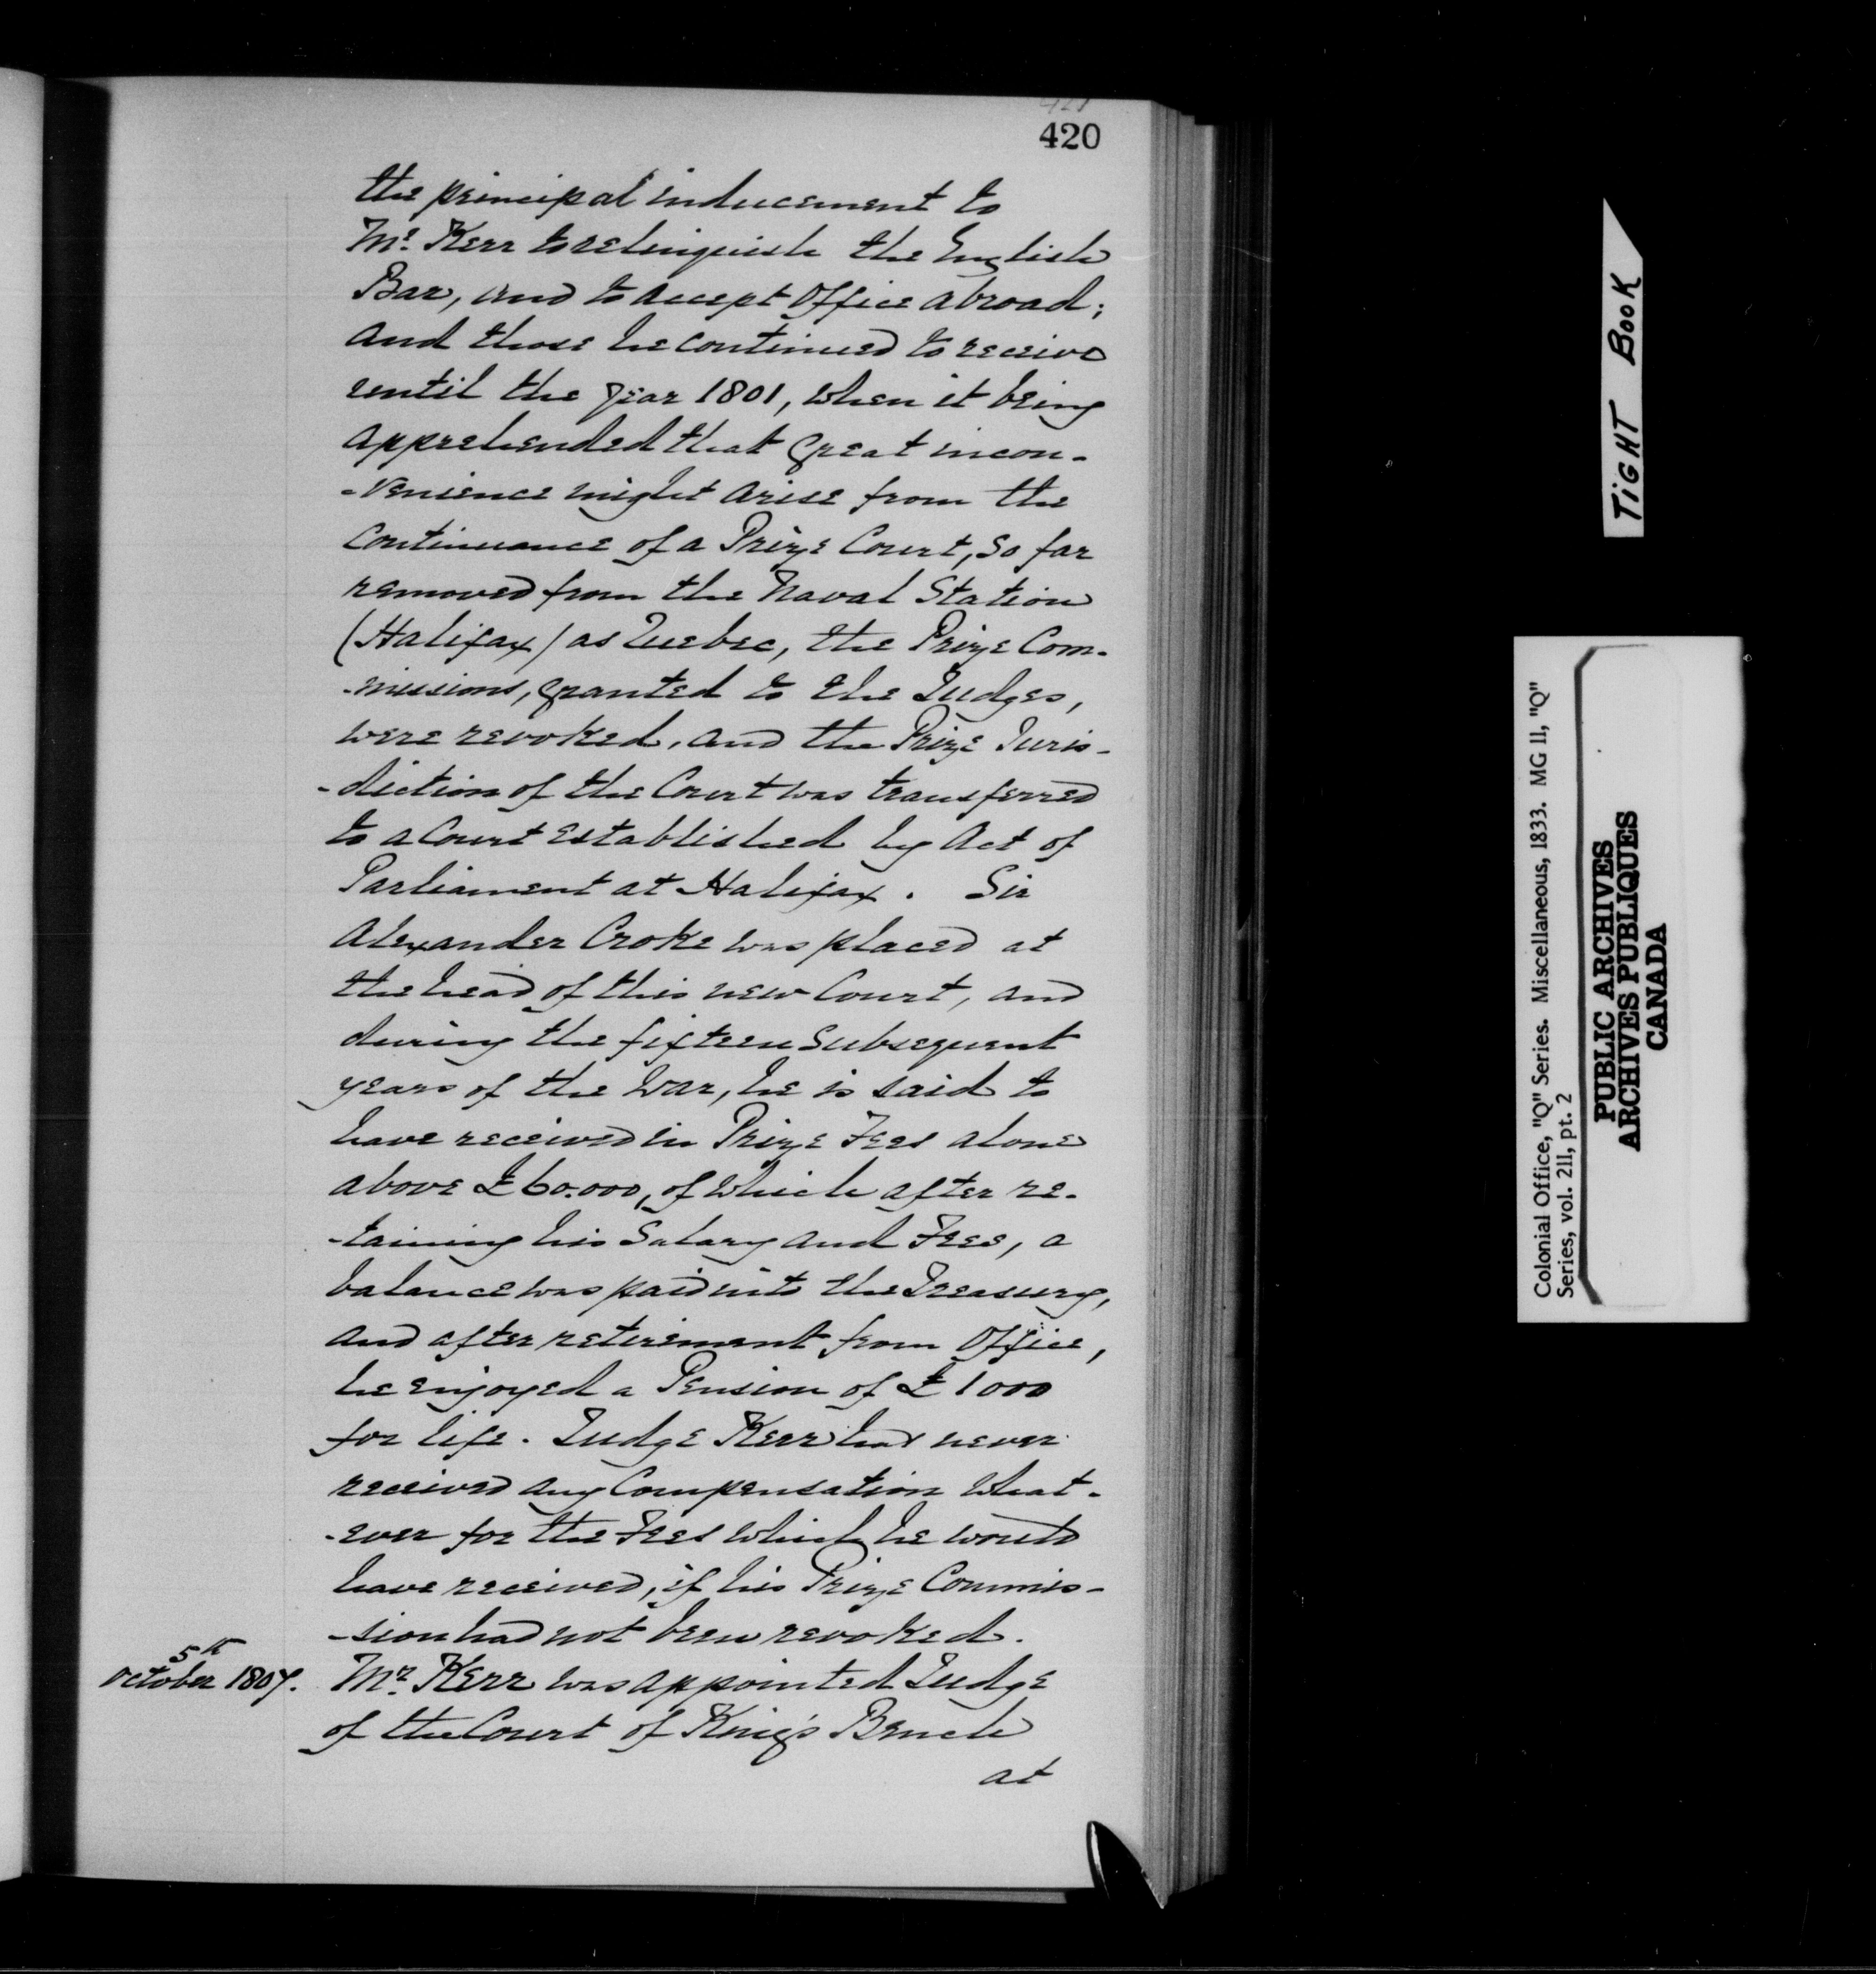 420
the principal inducement to
Mr. Kerr to relinquish the English
Bar, and to accept Office abroad;
and those he continued to receive
until the year 1801, when it being
apprehended that great incon-
-venience might arise from the
continuance of a Prize Court, so far
removed from the Naval Station
(Halifax) as Quebec, the Prize Com-
-missions, granted to the Judges,
were revoked, and the Prize Juris-
-diction of the Court was transferred
to a Court established by Act of
Parliament at Halifax. Sir
Alexander Croke was placed at
the head of this new Court, and
during the fifteen subsequent
years of the War, he is said to
have received in Prize Fees alone
above £60.000, of which after re-
-taining his Salary and Fees, a
balance was paid into the Treasury,
and after retirement from Office,
he enjoyed a Pension of £1000
for life. Judge Kerr has never
received any Compensation what-
-ever for the Fees which he would
have received, if his Prize Commis-
-sion had not been revoked.
5th
October 1807.
Mr. Kerr was appointed Judge
of the Court of King's Bench
at
TIGHT BOOK
Colonial Office, "Q" Series. Miscellaneous, 1833. MG 11, "Q"
Series, vol. 211, pt. 2
PUBLIC ARCHIVES
ARCHIVES PUBLIQUES
CANADA